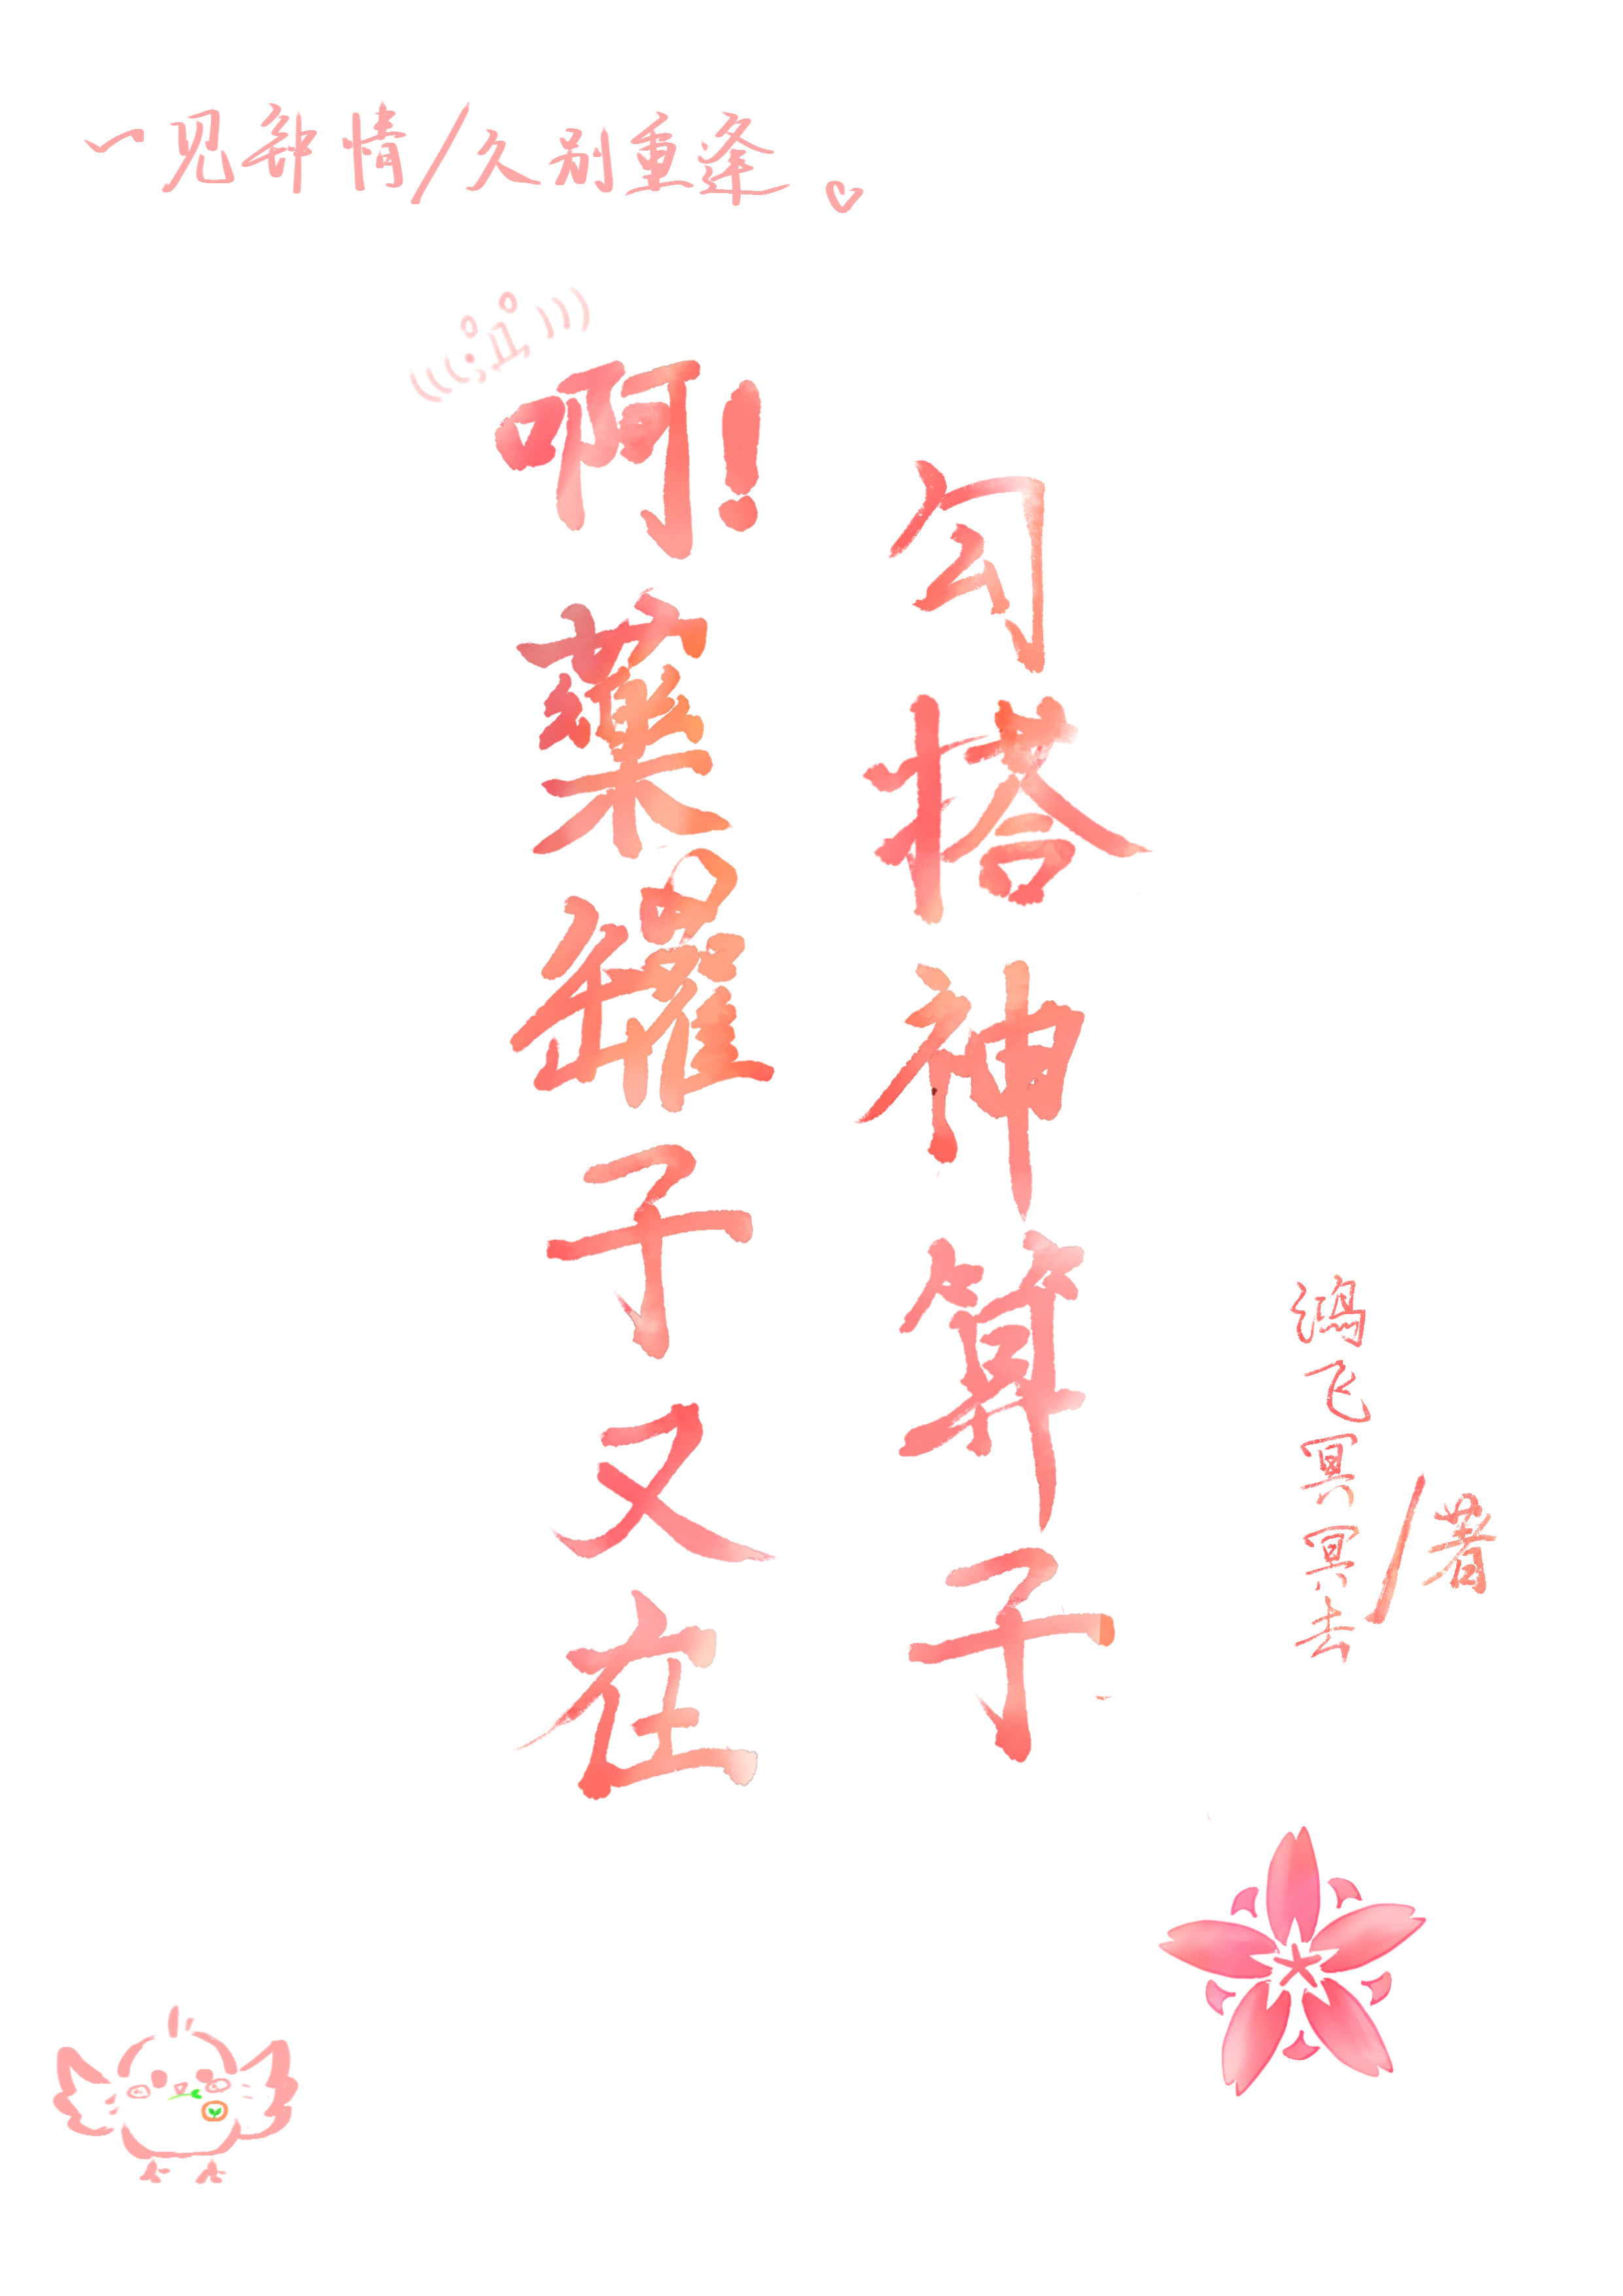 一见钟情/久别重逢
(((;°Д°)))
啊!藥罐子又在
勾搭神算子
鸿飞冥冥去/著